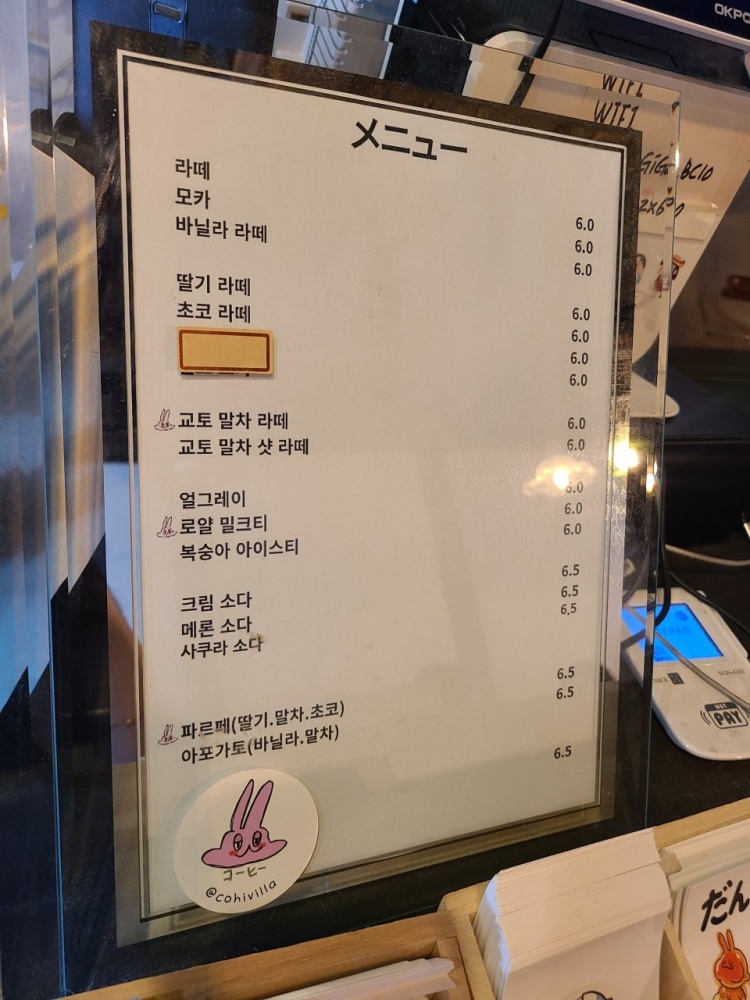 OKPO
WIFI
WIFI
メニュー
라떼
모카 6.0
바닐라 라떼 6.0
6.0
딸기 라떼
초코 라떼 6.0
6.0
6.0
6.0
교토 말차 라떼 6.0
교토 말차 샷 라떼 6.0
얼그레이 6.0
로얄 밀크티 6.0
복숭아 아이스티 6.0
6.5
크림 소다 6.5
메론 소다 6.5
사쿠라 소다
6.5
6.5
파르페(딸기.말차.초코)
아포가토(바닐라.말차) 6.5
PAY
コーヒー
@cohivilla
だん